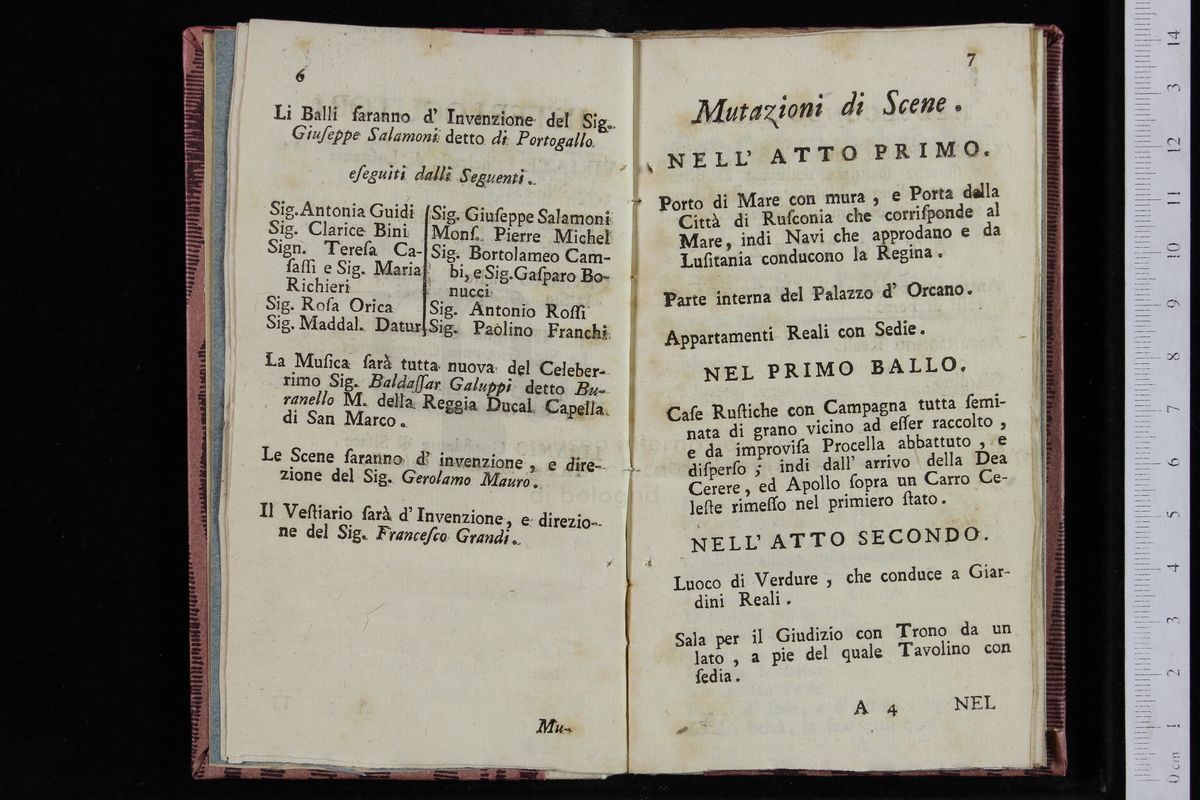 6
Li Balli ſaranno d' Invenzione del Sig.
Giuſeppe Salamoni detto di Portogallo.
eſeguiti dalli Seguenti.
Sig. Antonia Guidi
Sig. Clarice Bini
Sign. Tereſa Ca-
ſaſſi e Sig. Maria
Richieri
Sig. Roſa Orica
Sig. Maddal. Datur.
Sig. Giuſeppe Salamoni
Monſ. Pierre Michel
Sig. Bortolameo Cam-
bi, e Sig. Gaſparo Bo-
nucci
Sig. Antonio Roſſi
Sig. Paolino Franchi
La Muſica ſarà tutta nuova del Celeber-
rimo Sig. Baldaſſar Galuppi detto Bu-
ranello M. della Reggia Ducal Capella
di San Marco.
Le Scene ſaranno d' invenzione, e dire-
zione del Sig. Gerolamo Mauro.
Il Veſtiario ſarà d' Invenzione, e direzio-
ne del Sig. Franceſco Grandi.
Mu-
7
Mutazioni di Scene.
NELL' ATTO PRIMO.
Porto di Mare con mura, e Porta della
Città di Ruſconia che corriſponde al
Mare, indi Navi che approdano e da
Luſitania conducono la Regina.
Parte interna del Palazzo d' Orcano.
Appartamenti Reali con Sedie.
NEL PRIMO BALLO.
Caſe Ruſtiche con Campagna tutta ſemi-
nata di grano vicino ad eſſer raccolto,
e da improviſa Procella abbattuto, e
diſperſo; indi dall' arrivo della Dea
Cerere, ed Apollo ſopra un Carro Ce-
leſte rimeſſo nel primiero ſtato.
NELL' ATTO SECONDO.
Luoco di Verdure, che conduce a Giar-
dini Reali.
Sala per il Giudizio con Trono da un
lato, a pie del quale Tavolino con
ſedia.
A 4 NEL
14
13
12
11
10
9
8
7
6
5
4
3
2
1
0 cm